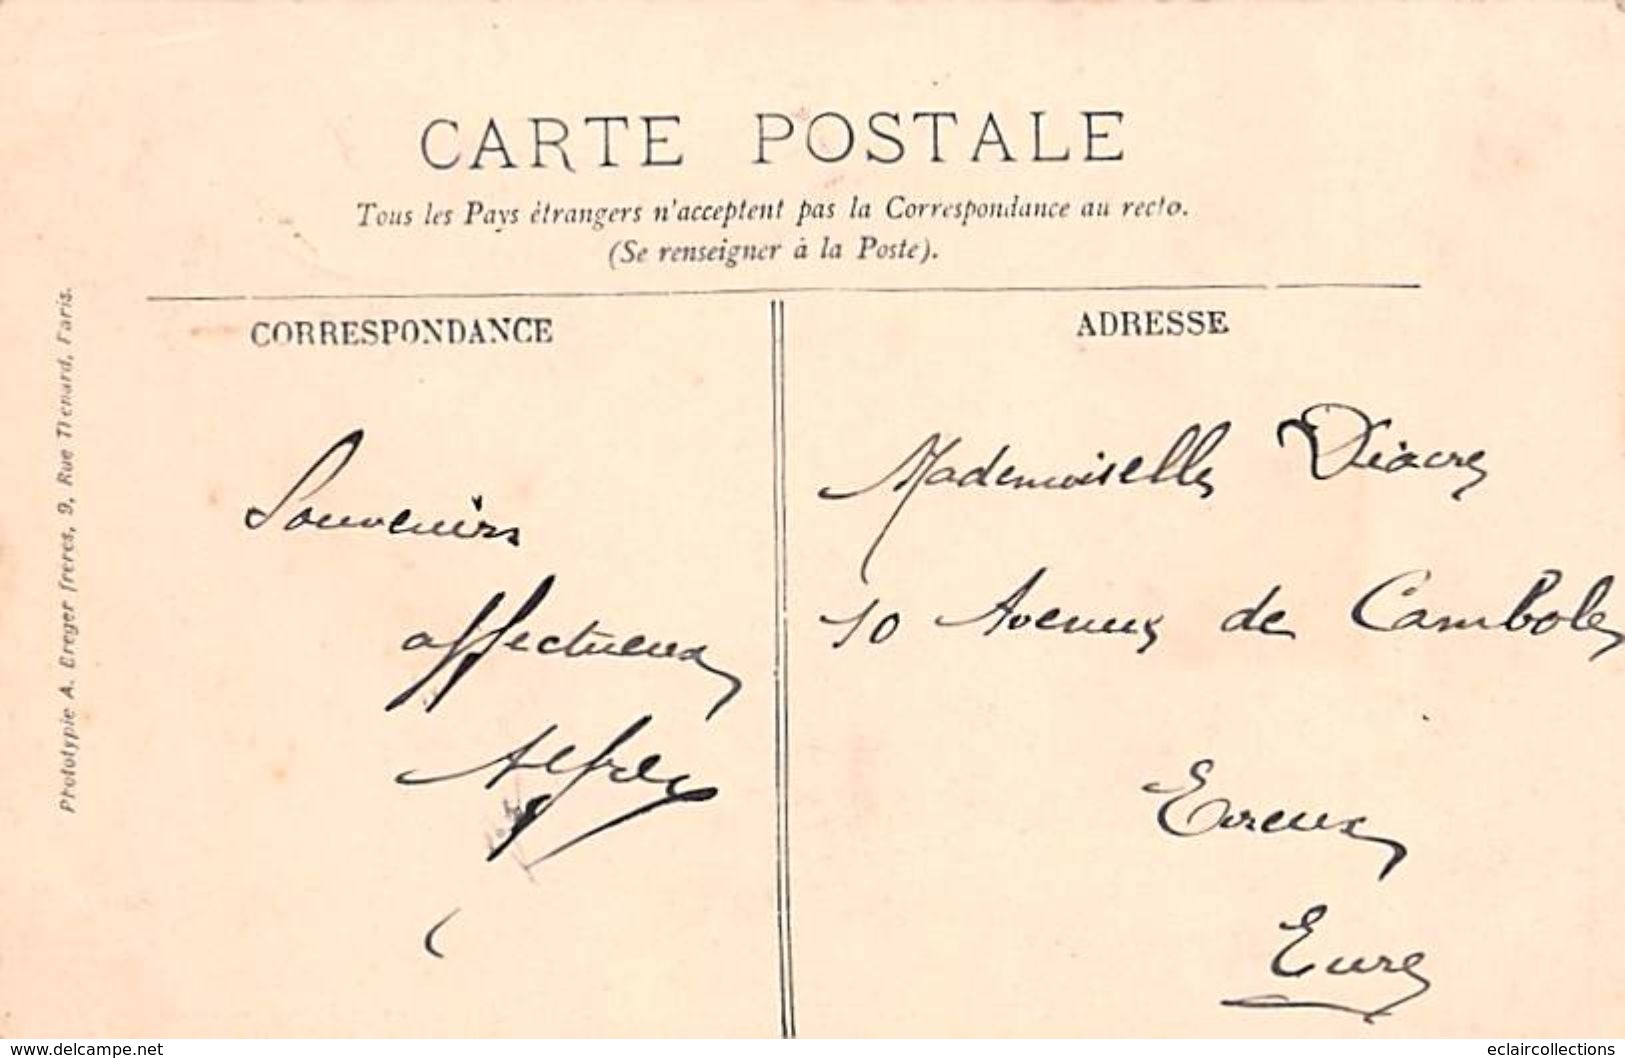 CARTE POSTALE
Tous les Pays étrangers n'acceptent pas la Correspondance au recto.
(Se renseigner à la Poste).
CORRESPONDANCE
ADRESSE
Phototypie A. Breger frères, 9, Rue Thénard, Paris.
Souvenirs
affectueux
Alfred
Mademoiselle Diacre
10 Avenue de Cambolle
Evreux
Eure
www.delcampe.net
eclaircollections